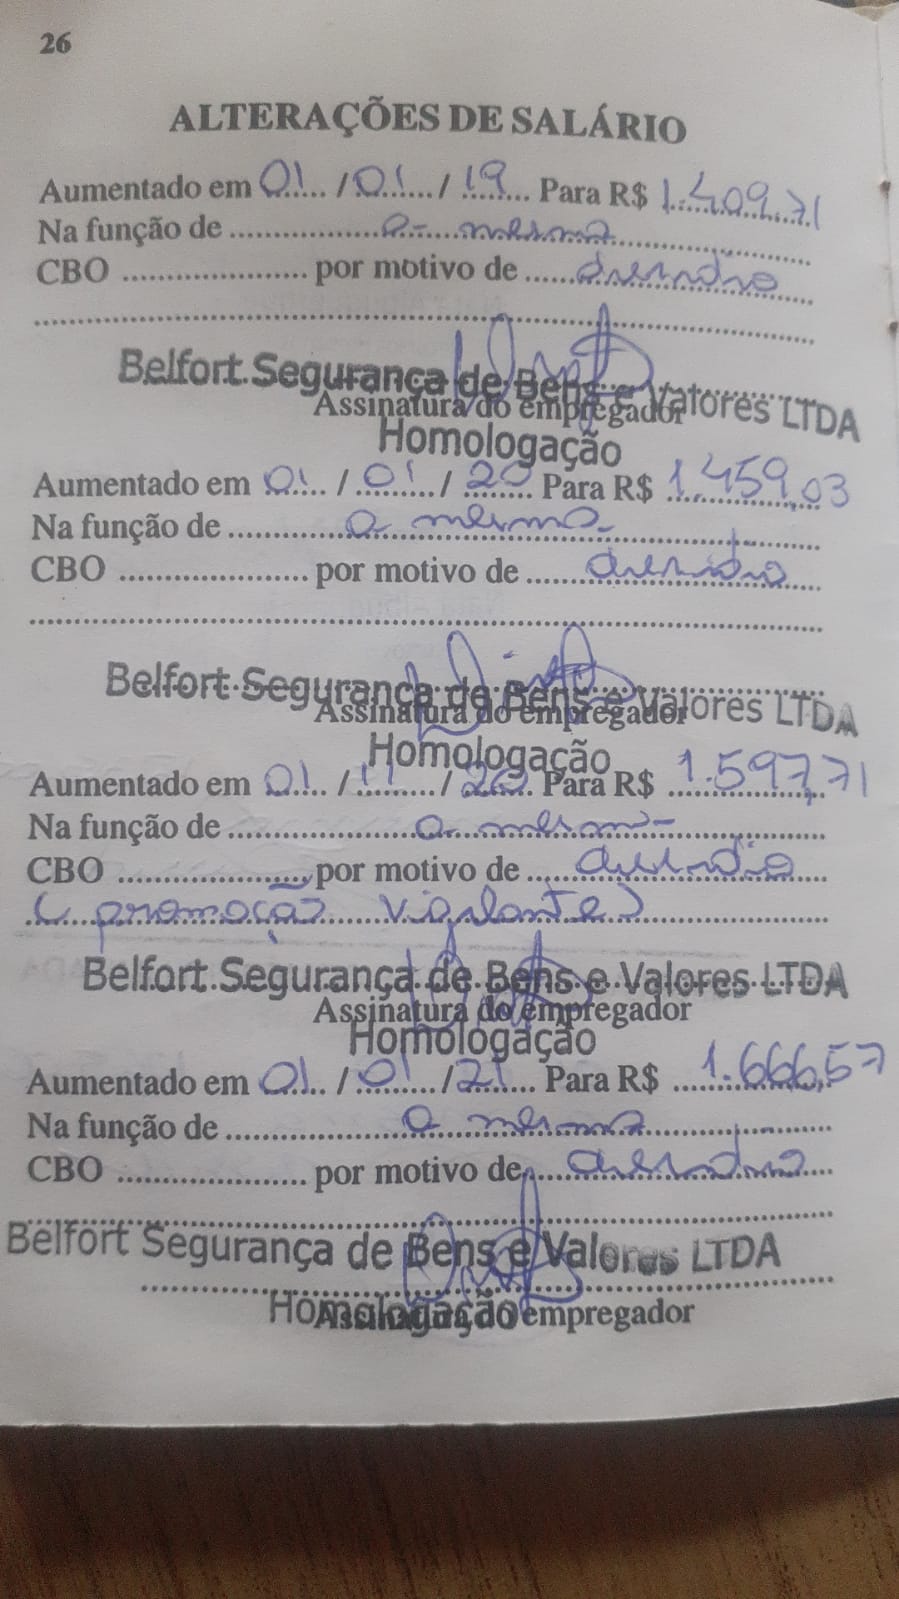 26
ALTERAÇÕES DE SALÁRIO
Aumentado em 01 / 01 / 19 Para R$ 1.409,71
Na função de a mesma
CBO .................... por motivo de dissídio
Belfort Segurança de Bens e Valores LTDA
Assinatura do empregador
Homologação
Aumentado em 01 / 01 / 20 Para R$ 1.459,03
Na função de a mesma
CBO .................... por motivo de dissídio
Belfort Segurança de Bens e Valores LTDA
Assinatura do empregador
Homologação
Aumentado em 01 / 11 / 20 Para R$ 1.597,71
Na função de a mesma
CBO .................... por motivo de dissídio
( promoção vigilante )
Belfort Segurança de Bens e Valores LTDA
Assinatura do empregador
Homologação
Aumentado em 01 / 01 / 21 Para R$ 1.666,57
Na função de a mesma
CBO .................... por motivo de dissídio
Belfort Segurança de Bens e Valores LTDA
Homologação
Assinatura do empregador